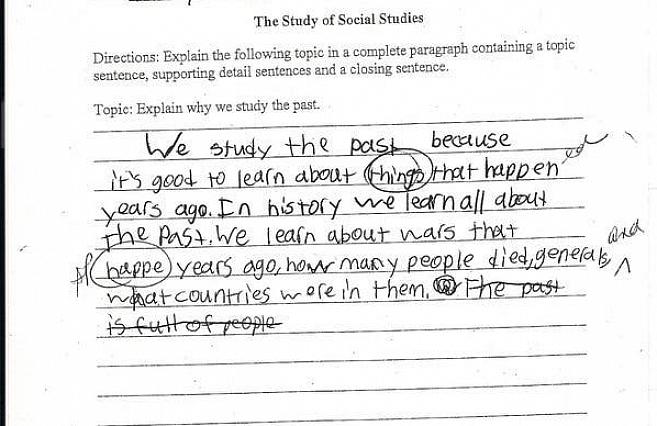 The Study of Social Studies
Directions: Explain the following topic in a complete paragraph containing a topic
sentence, supporting detail sentences and a closing sentence.
Topic: Explain why we study the past.
We study the past because
it's good to learn about things that happen ed
years ago. In history we learn all about
the Past. We learn about wars that
happe years ago, how many people died, generals and
what countries were in them. The past
is full of people